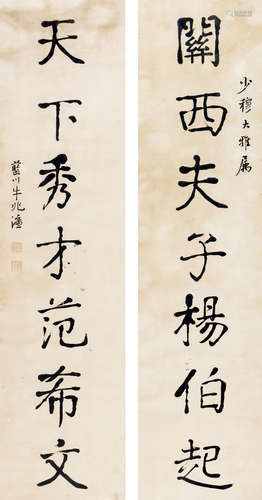 少穆大雅属
關西夫子楊伯起
天下秀才范希文
藍川牛兆濂